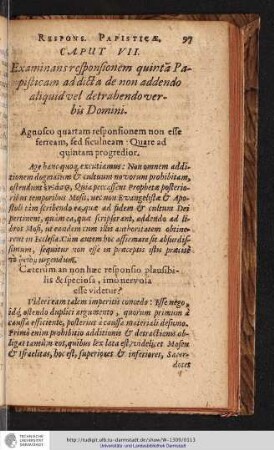 RESPONS. PAPISTICÆ. 97
CAPUT VII.
Examinans responsionem quintā Pa-
pisticam ad dicta de non addendo
aliquid vel detrahendo ver-
bis Domini.
Agnosco quartam responsionem non esse
ferream, sed ficulneam: Quare ad
quintam progredior.
Age hanc quoq; excutiamus: Non omnem addi-
tionem dogmatum & cultuum novorum prohibitam,
ostendunt Quia peccassent Prophetæ posterio-
ribus temporibus Mosis, nec non Evangelistæ & Apo-
stoli tàm scribendo ea, quæ ad fidem & cultum Dei
pertinent, quàm ea, quæ scripserant, addendo ad li-
bros Mosis, ut eandem cum illis authoritatem obtine-
rent in Ecclesia. Cùm autem hoc affirmare sit absurdis-
simum, sequitur non esse in præceptis istis præcisè
urgendum.
Cæterùm an non hæc responsio plausibi-
lis & speciosa, imò nervosa
esse videtur?
Videri eam talem imperitis concedo: Esse nego,
idq; ostendo duplici argumento, quorum primum à
caussa efficiente, posterius à caussa materiali desumo.
Primò enim prohibitio additionis & detractionis ob-
ligat tantùm eos, quibus lex lata est, videlicet Mosen
& Israëlitas, hoc est, superiores & inferiores, Sacer-
dotes
TECHNISCHE
UNIVERSITÄT
DARMSTADT
http://tudigit.ulb.tu-darmstadt.de/show/W-1309/0113
Universitäts- und Landesbibliothek Darmstadt